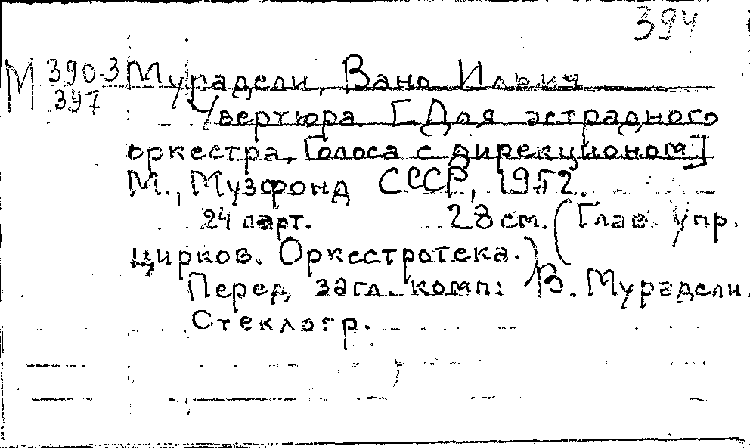 394
М 390-3 Мурадели, Вано Ильич
397
Увертюра [Для эстрадного
оркестра. Голоса с дирекционом]
М., Музфонд СССР, 1952.
24 парт. 28 см. (Глав. упр.
цирков. Оркестротека.)
Перед загл. комп: В. Мурадели.
Стеклогр.